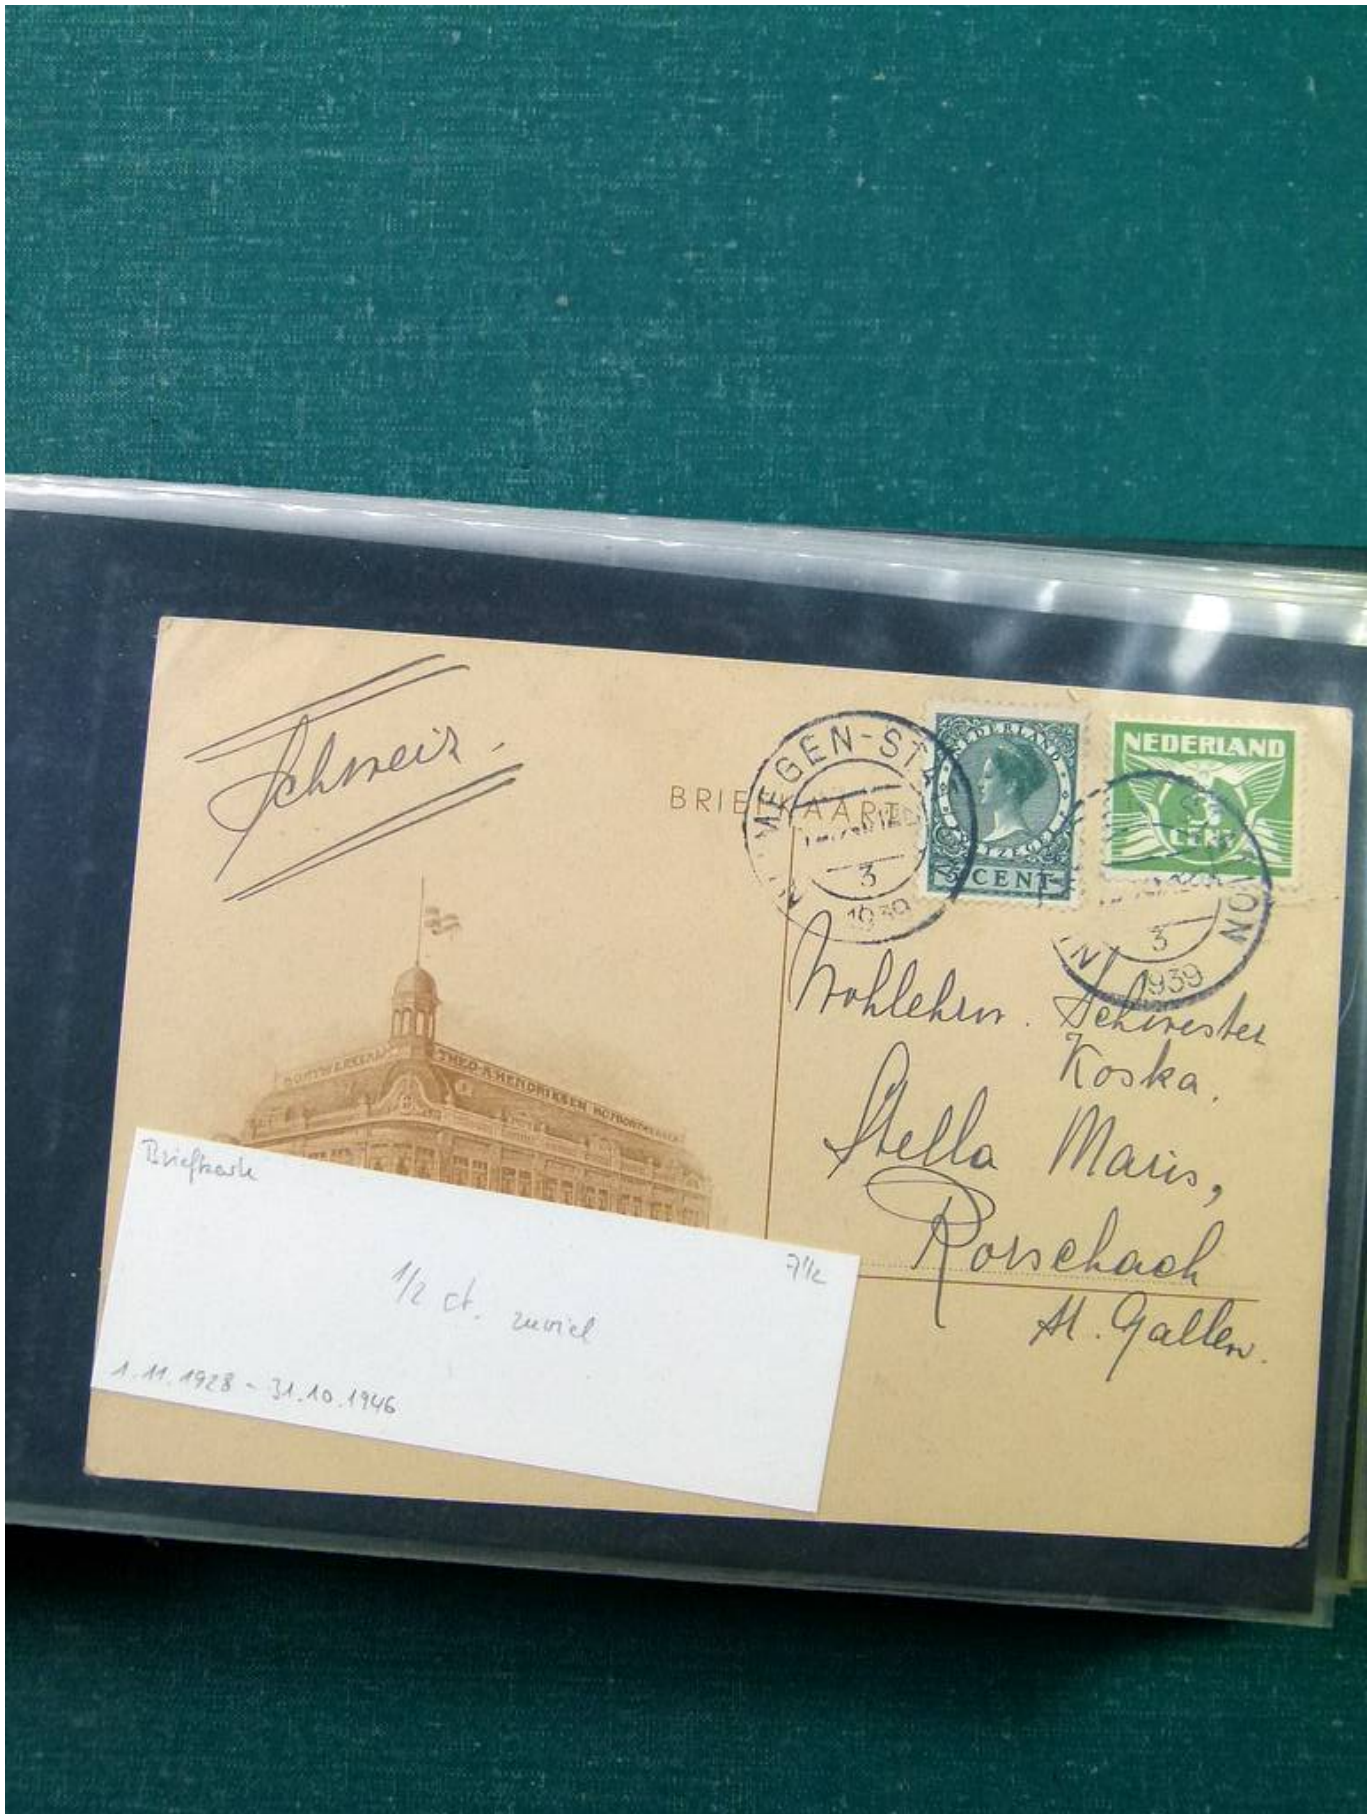 Schweiz.
BRIEFKAART
NIJMEGEN-STATION
3
1939
NEDERLAND
5 CENT
NEDERLAND
3
CENT
STATION
3
1939
Wohlehrw. Schwester
Koska.
Stella Maris,
Rorschach
St. Gallen.
THEO A HENDRIKSEN BONTWERKER
Briefkarte
7 1/2
1/2 ct. zuviel
1.11.1928 - 31.10.1946